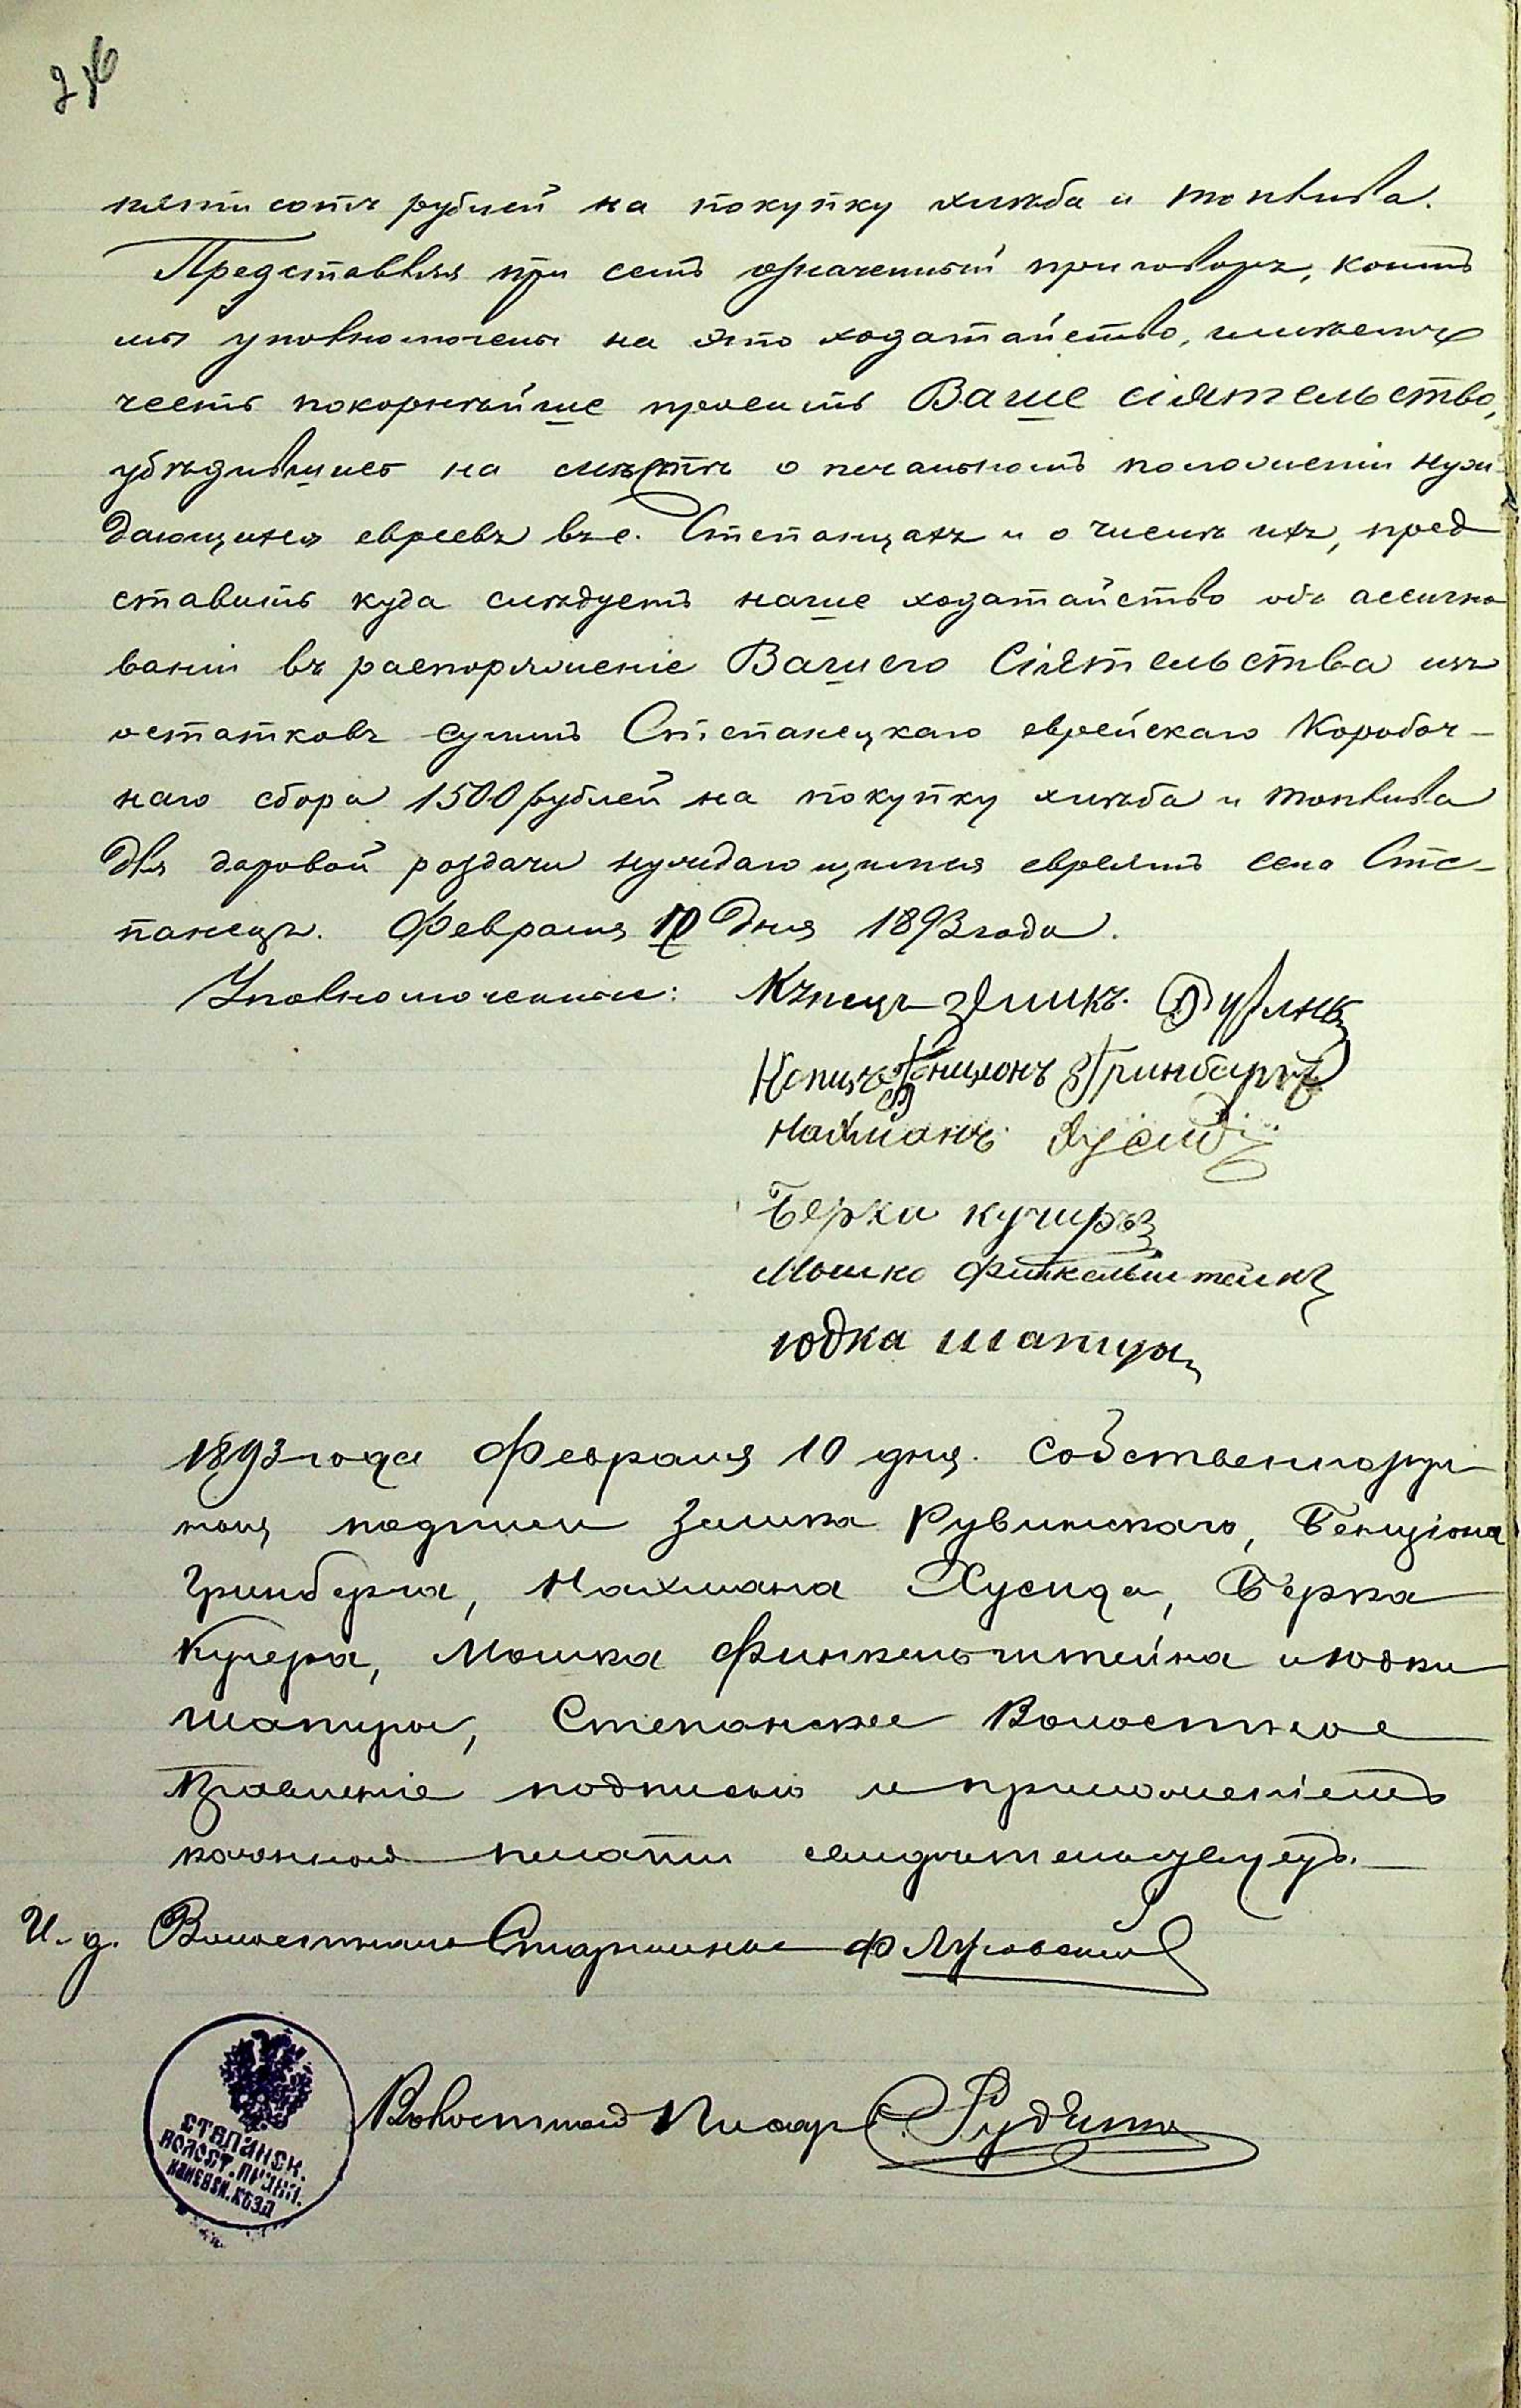 пяти сотъ рублей на покупку хлѣба и топлива.
Представляя при семъ означенный приговоръ, коимъ
мы уполномочены на это ходатайство, имѣемъ
честь покорнѣйше просить Ваше сіятельство,
убѣдившись на мѣстѣ о печальномъ положеніи нуж-
дающихся евреевъ въ с. Степанцахъ и о числѣ ихъ, пред
ставить куда слѣдуетъ наше ходатайство объ ассигно
ваніи въ распоряженіе Вашего Сіятельства изъ
остатковъ суммъ Степанецкаго еврейскаго Коробоч-
наго сбора 1500 рублей на покупку хлѣба и топлива
для даровой роздачи нуждающимся евреямъ села Сте-
панецъ. Февраля 10 дня 1893 года.
Уполномоченные:
Гринбергъ
Нахманъ Хусидъ
Берко кучиръ
Мошко Финкельштейнъ
юдка шапира
1893 года Февраля 10 дня. Собственноруч-
ную подписи Зелика Рувинскаго, Бенціона
Гринберга, Нахмана Хусида, Берка
Кучера, Мошка Финкельштейна и Юдки
Шапиры, Степанское Волостное
Правленіе подписью и приложеніемъ
казенной печати свидѣтельствуетъ.
И. д. Волостнаго Старшины Ф Луговский
Волостной Писарь
СТЕПАНСК.
ВОЛОСТ. ПРАВЛ.
КАНЕВСК. УѢЗД